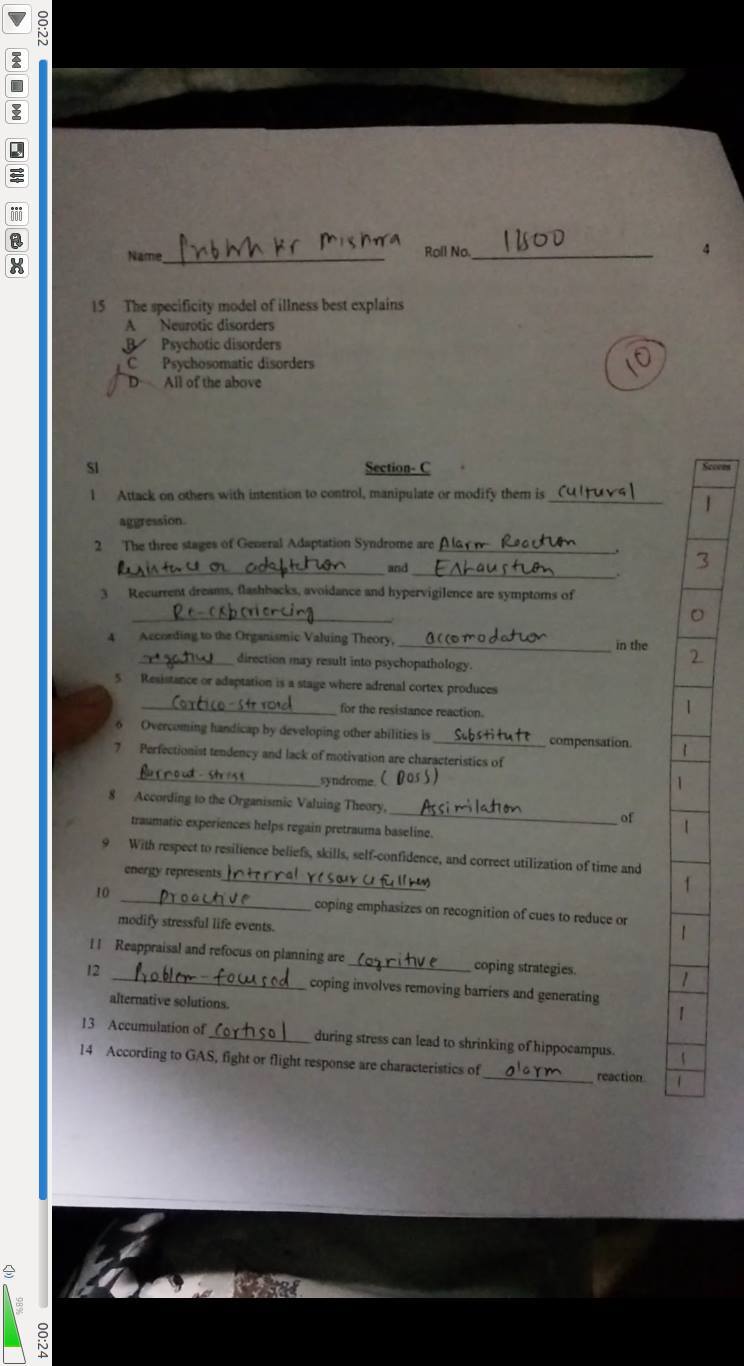 00:22
Name Roll No. 4
15 The specificity model of illness best explains
A Neurotic disorders
B Psychotic disorders
C Psychosomatic disorders
D All of the above
10
Sl Section- C Scores
1 Attack on others with intention to control, manipulate or modify them is cultural 1
aggression.
2 The three stages of General Adaptation Syndrome are Alarm Reaction,
Resistance or adaptation and Exhaustion. 3
3 Recurrent dreams, flashbacks, avoidance and hypervigilence are symptoms of
Re-experiencing 0
4 According to the Organismic Valuing Theory, accomodation in the
negative direction may result into psychopathology. 2
5 Resistance or adaptation is a stage where adrenal cortex produces
Cortico-steroid for the resistance reaction. 1
6 Overcoming handicap by developing other abilities is Substitute compensation. 1
7 Perfectionist tendency and lack of motivation are characteristics of
Burnout-stress syndrome. (BOSS) 1
8 According to the Organismic Valuing Theory, Assimilation of 1
traumatic experiences helps regain pretrauma baseline.
9 With respect to resilience beliefs, skills, self-confidence, and correct utilization of time and
energy represents Internal resourcefullness 1
10 Proactive coping emphasizes on recognition of cues to reduce or
modify stressful life events. 1
11 Reappraisal and refocus on planning are Cognitive coping strategies. 1
12 Problem-focused coping involves removing barriers and generating
alternative solutions. 1
13 Accumulation of Cortisol during stress can lead to shrinking of hippocampus. 1
14 According to GAS, fight or flight response are characteristics of alarm reaction. 1
98%
00:24